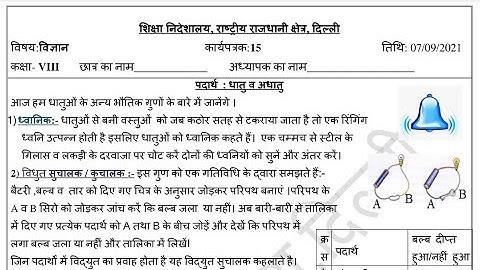 शिक्षा निदेशालय, राष्ट्रीय राजधानी क्षेत्र, दिल्ली
विषय:विज्ञान कार्यपत्रक:15 तिथि: 07/09/2021
कक्षा- VIII छात्र का नाम______________ अध्यापक का नाम______________
पदार्थ : धातु व अधातु
आज हम धातुओं के अन्य भौतिक गुणों के बारे में जानेंगे ।
1)ध्वानिक:- धातुओं से बनी वस्तुओं को जब कठोर सतह से टकराया जाता है तो एक रिंगिंग
ध्वनि उत्पन्न होती है इसलिए धातुओं को ध्वानिक कहते हैं। एक चम्मच से स्टील के
गिलास व लकड़ी के दरवाजा पर चोट करें दोनों की ध्वनियों को सुनें और अंतर करें।
2) विधुत सुचालक / कुचालक :- इस गुण को एक गतिविधि के द्वारा समझते हैं:-
बैटरी ,बल्ब व तार को दिए गए चित्र के अनुसार जोड़कर परिपथ बनाएं ।परिपथ के
A व B सिरो को जोड़कर जांच करें कि बल्ब जला या नहीं। अब बारी-बारी से तालिका
में दिए गए प्रत्येक पदार्थ को A तथा B के बीच जोड़ें और देखें कि परिपथ में
लगा बल्ब जला या नहीं और तालिका में लिखें।
जिन पदार्थों में विद्युत का प्रवाह होता है यह विद्युत सुचालक कहलाते है।
A B A B
क्र पदार्थ बल्ब दीप्त
स हुआ/नहीं हुआ